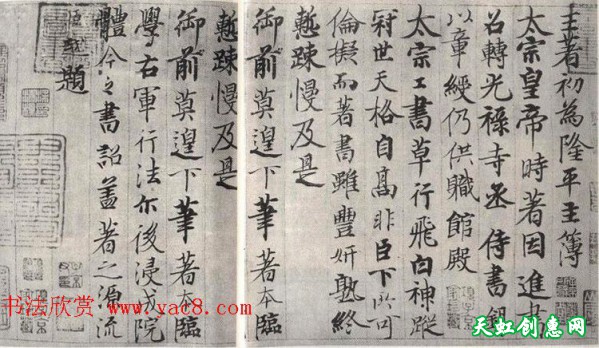 王著初為隆平主簿
太宗皇帝時著因進書
召轉光祿寺丞侍書錫
以章綬仍供職館殿
太宗工書草行飛白神蹤
冠世天格自高非臣下所可
倫擬而著書雖豐妍熟終
慙踈慢及是
御前莫遑下筆著本臨
慙踈慢及是
御前莫遑下筆著本臨
學右軍行法尔後浸成院
體今之書詔盖著之源流
題
书法欣赏 www.yac8.com
天虹创意网